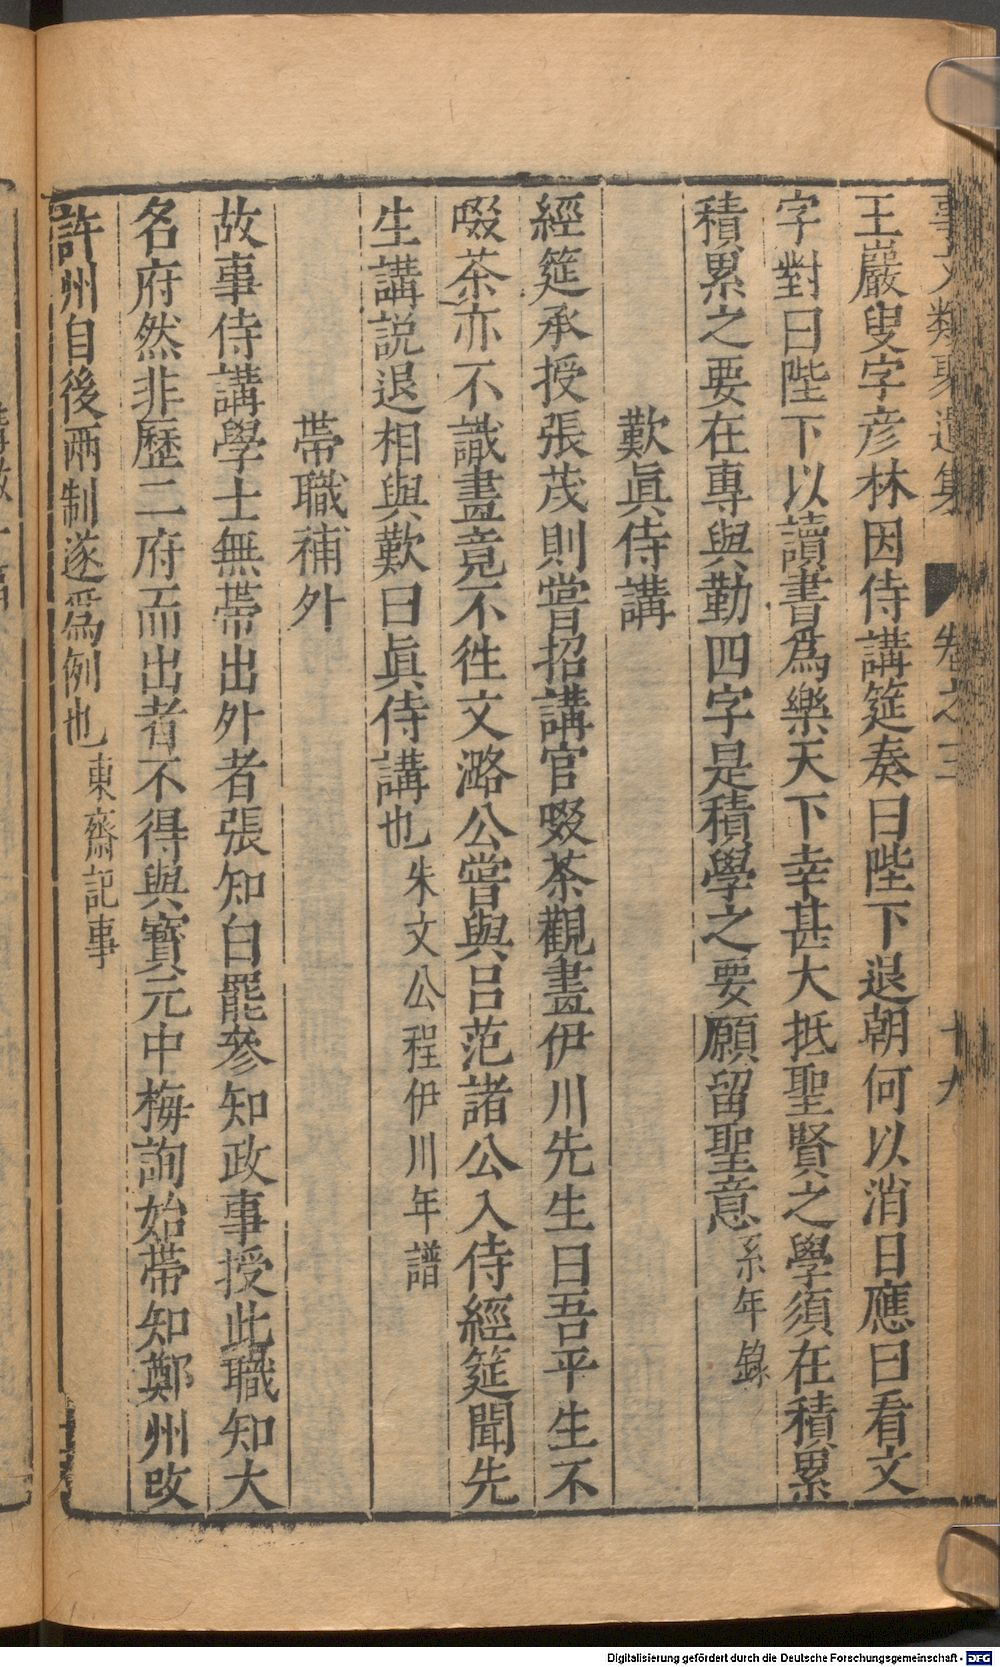 事文類聚遺集　卷之三　十九
王巖叟字彦林因侍講筵奏曰陛下退朝何以消日應曰看文
字對曰陛下以讀書爲樂天下幸甚大抵聖賢之學須在積累
積累之要在專與勤四字是積學之要願留聖意系年錄
歎眞侍講
經筵承授張茂則嘗招講官啜茶觀畫伊川先生曰吾平生不
啜茶亦不識畫竟不徃文潞公嘗與吕范諸公入侍經筵聞先
生講説退相與歎曰眞侍講也朱文公程伊川年譜
帶職補外
故事侍講學士無帶出外者張知白罷參知政事授此職知大
名府然非歷二府而出者不得與寳元中梅詢始帶知鄭州改
許州自後兩制遂爲例也東齋記事
Digitalisierung gefördert durch die Deutsche Forschungsgemeinschaft - DFG